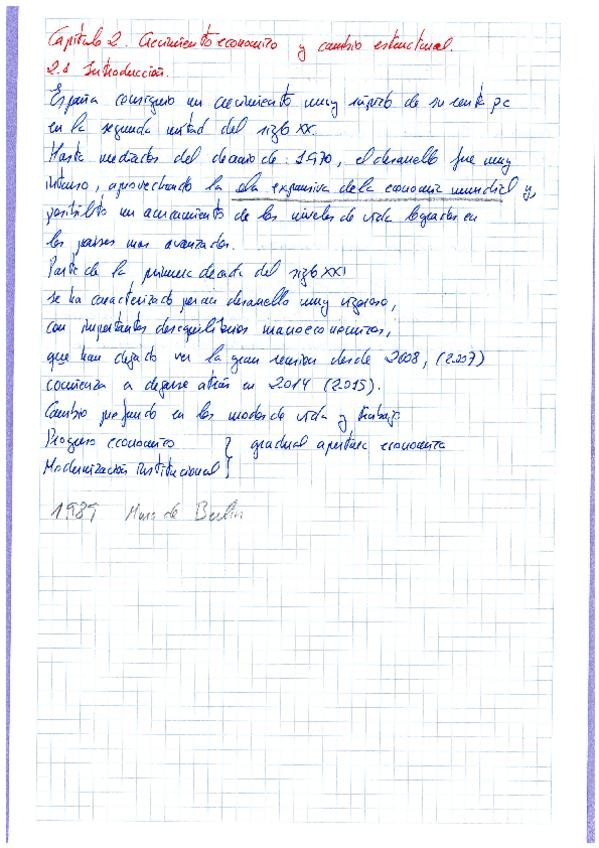 Capítulo 2. Crecimiento economico y cambio estructural.
2.1 Introducción.
España consiguio un crecimiento muy rapido de su renta pc
en la segunda mitad del siglo XX.
Hasta mediados del decenio de 1970, el desarrollo fue muy
intenso, aprovechando la ola expansiva de la economia mundial y,
posibilito un acercamiento de los niveles de vida logrados en
los paises mas avanzados.
Parte de la primera decada del siglo XXI
se ha caracterizado por un desarrollo muy vigoroso,
con importantes desequilibrios macroeconomicos,
que han dejado ver la gran recesion desde 2008, (2.007)
comienza a dejarse atras en 2014 (2.015).
Cambio profundo en los modos de vida y trabajo
Progreso economico } gradual apertura economica
Modernización institucional }
1989 Muro de Berlin